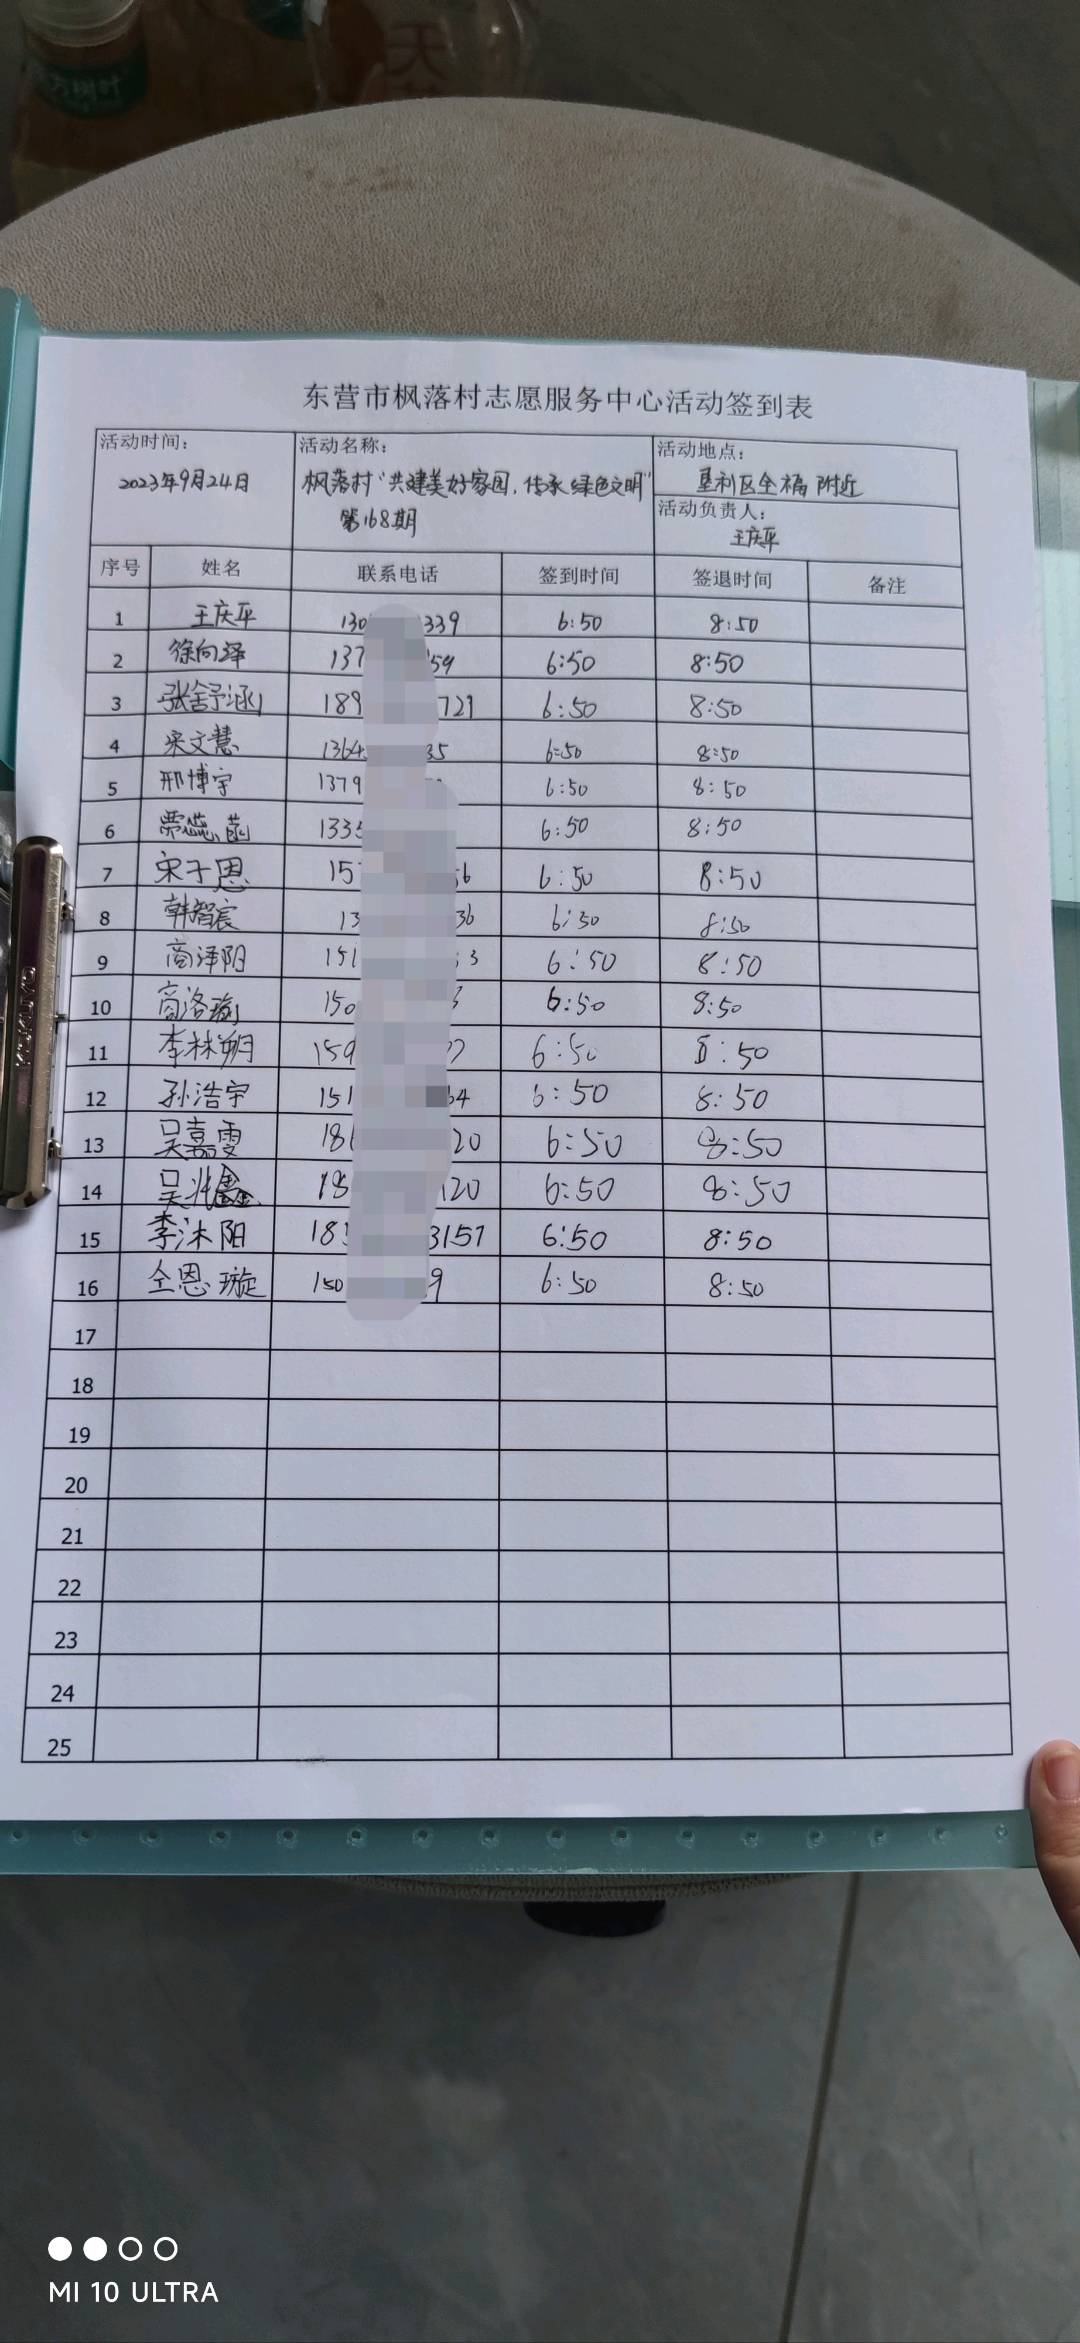 天
东方树叶
东营市枫落村志愿服务中心活动签到表
活动时间: 活动名称: 活动地点:
2023年9月24日 枫落村“共建美好家园,传承绿色文明” 垦利区全福附近
第168期 活动负责人:
王庆平
序号 姓名 联系电话 签到时间 签退时间 备注
1 王庆平 130 339 6:50 8:50
2 徐向泽 137 59 6:50 8:50
3 张舒涵 189 729 6:50 8:50
4 宋文慧 1364 35 6:50 8:50
5 邢博宇 1379 6:50 8:50
6 贾蕊菡 1335 6:50 8:50
7 宋子恩 15 56 6:50 8:50
8 韩智宸 13 36 6:50 8:50
9 商泽阳 151 3 6:50 8:50
10 商洛瑜 150 6:50 8:50
11 李林朔 159 6:50 8:50
12 孙浩宇 151 64 6:50 8:50
13 吴嘉雯 186 20 6:50 8:50
14 吴兆鑫 18 120 6:50 8:50
15 李沐阳 18 3157 6:50 8:50
16 仝恩璇 150 9 6:50 8:50
17
18
19
20
21
22
23
24
25
KOKUYO
MI 10 ULTRA